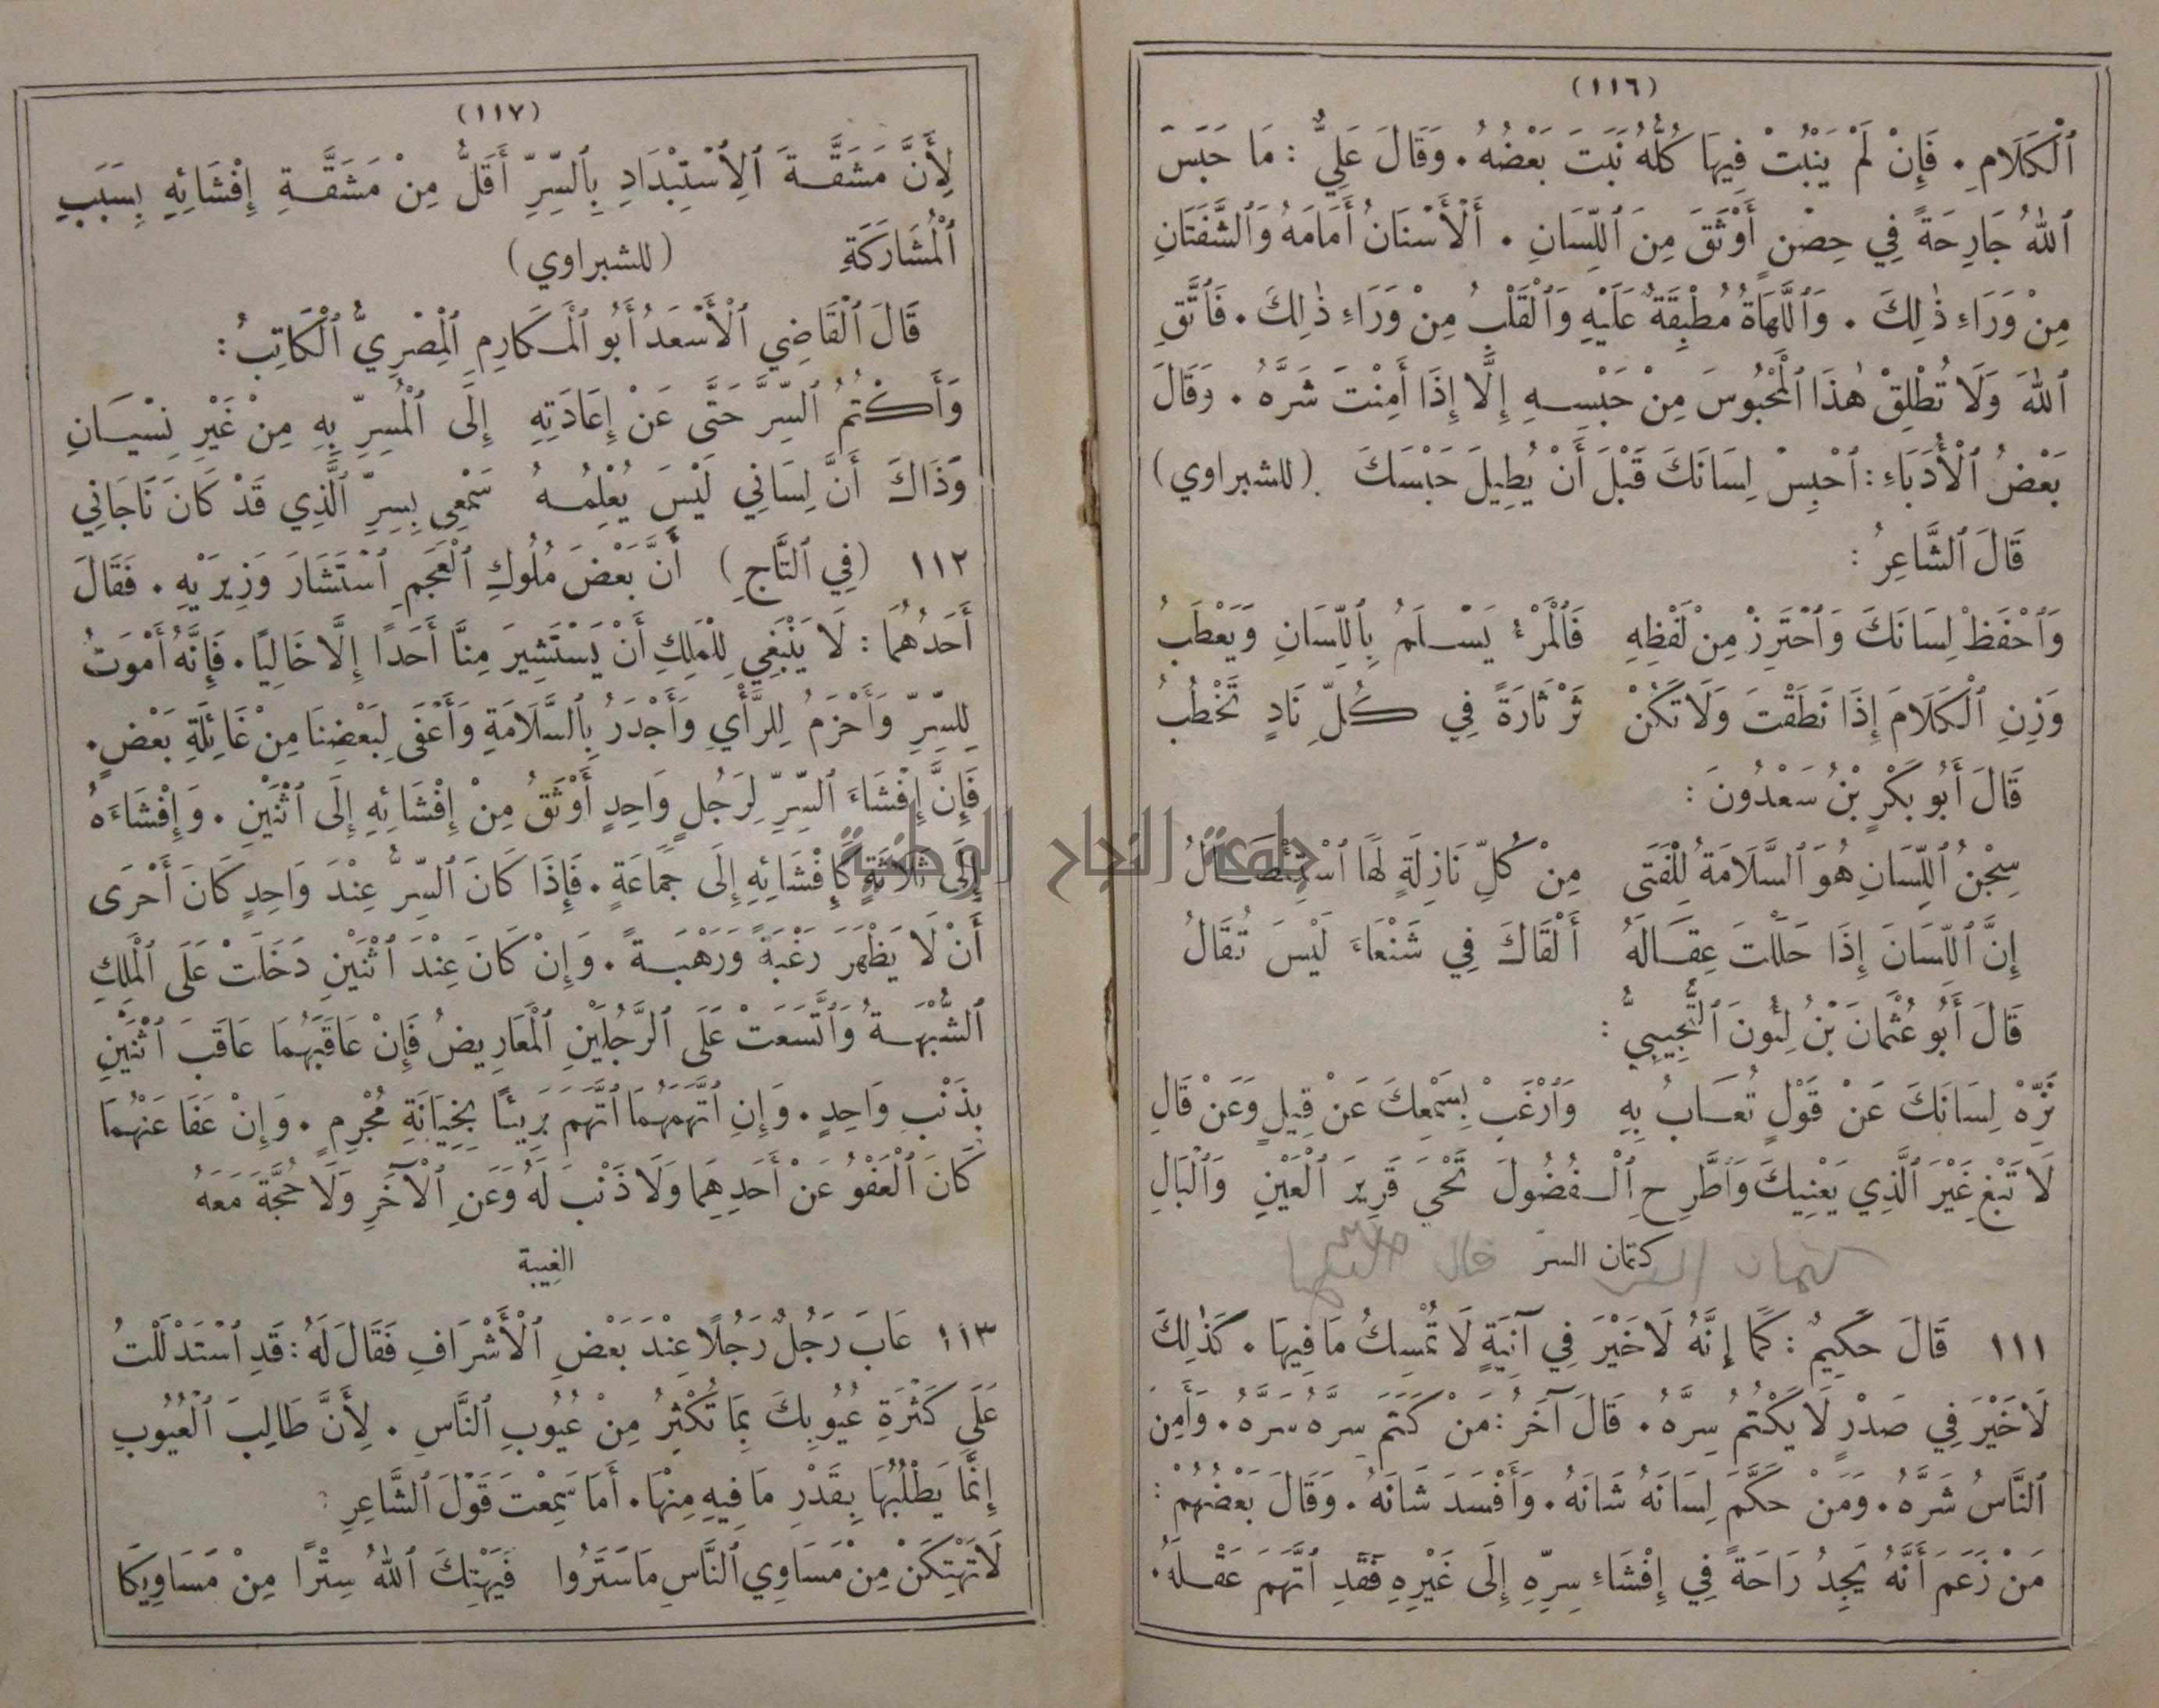 (١١٦)
ٱلْكَلَامِ . فَإِنْ لَمْ يَنْبُتْ فِيهَا كُلُّهُ نَبَتَ بَعْضُهُ . وَقَالَ عَلِيٌّ : مَا حَبَسَ
ٱللهُ جَارِحَةً فِي حِصْنٍ أَوْثَقَ مِنَ ٱللِّسَانِ . أَلْأَسْنَانُ أَمَامَهُ وَٱلشَّفَتَانِ
مِنْ وَرَاءِ ذٰلِكَ . وَٱللَّهَاةُ مُطْبِقَةٌ عَلَيْهِ وَٱلْقَلْبُ مِنْ وَرَاءِ ذٰلِكَ . فَٱتَّقِ
ٱللهَ وَلَا تُطْلِقْ هٰذَا ٱلْمَحْبُوسَ مِنْ حَبْسِهِ إِلَّا إِذَا أَمِنْتَ شَرَّهُ . وَقَالَ
بَعْضُ ٱلْأُدَبَاءِ : ٱحْبِسْ لِسَانَكَ قَبْلَ أَنْ يُطِيلَ حَبْسَكَ . (للشبراوي)
قَالَ ٱلشَّاعِرُ :
وَٱحْفَظْ لِسَانَكَ وَٱحْتَرِزْ مِنْ لَفْظِهِ فَٱلْمَرْءُ يَسْلَمُ بِٱللِّسَانِ وَيَعْطَبُ
وَزِنِ ٱلْكَلَامَ إِذَا نَطَقْتَ وَلَا تَكُنْ ثَرْثَارَةً فِي كُلِّ نَادٍ تَخْطُبُ
قَالَ أَبُو بَكْرِ بْنُ سَعْدُونَ :
سِجْنُ ٱللِّسَانِ هُوَ ٱلسَّلَامَةُ لِلْفَتَى مِنْ كُلِّ نَازِلَةٍ لَهَا ٱسْتِئْصَالُ
إِنَّ ٱللِّسَانَ إِذَا حَلَلْتَ عِقَالَهُ أَلْقَاكَ فِي شَنْعَاءَ لَيْسَ تُقَالُ
قَالَ أَبُو عُثْمَانَ بْنُ لِئُونَ ٱلتُّجِيبِيُّ :
نَزِّهْ لِسَانَكَ عَنْ قَوْلٍ تُعَابُ بِهِ وَٱرْغَبْ بِسَمْعِكَ عَنْ قِيلٍ وَعَنْ قَالِ
لَا تَبْغِ غَيْرَ ٱلَّذِي يَعْنِيكَ وَٱطَّرِحِ ٱلْفُضُولَ تَحْيَ قَرِيرَ ٱلْعَيْنِ وَٱلْبَالِ
كتمان السرّ
كتمان السر قال
١١١ قَالَ حَكِيمٌ : كَمَا إِنَّهُ لَا خَيْرَ فِي آنِيَةٍ لَا تُمْسِكُ مَا فِيهَا . كَذٰلِكَ
لَا خَيْرَ فِي صَدْرٍ لَا يَكْتُمُ سِرَّهُ . قَالَ آخَرُ : مَنْ كَتَمَ سِرَّهُ سَرَّهُ . وَأَمِنَ
ٱلنَّاسُ شَرَّهُ . وَمَنْ حَكَّمَ لِسَانَهُ شَانَهُ . وَأَفْسَدَ شَانَهُ . وَقَالَ بَعْضُهُمْ :
مَنْ زَعَمَ أَنَّهُ يَجِدُ رَاحَةً فِي إِفْشَاءِ سِرِّهِ إِلَى غَيْرِهِ فَقَدِ ٱتَّهَمَ عَقْلَهُ .
(١١٧)
لِأَنَّ مَشَقَّةَ ٱلِٱسْتِبْدَادِ بِٱلسِّرِّ أَقَلُّ مِنْ مَشَقَّةِ إِفْشَائِهِ بِسَبَبِ
ٱلْمُشَارَكَةِ (للشبراوي)
قَالَ ٱلْقَاضِي ٱلْأَسْعَدُ أَبُو ٱلْمَكَارِمِ ٱلْمِصْرِيُّ ٱلْكَاتِبُ :
وَأَكْتُمُ ٱلسِّرَّ حَتَّى عَنْ إِعَادَتِهِ إِلَى ٱلْمُسِرِّ بِهِ مِنْ غَيْرِ نِسْيَانِ
وَذَاكَ أَنَّ لِسَانِي لَيْسَ يُعْلِمُهُ سَمْعِي بِسِرِّ ٱلَّذِي قَدْ كَانَ نَاجَانِي
١١٢ (فِي ٱلتَّاجِ) أَنَّ بَعْضَ مُلُوكِ ٱلْعَجَمِ ٱسْتَشَارَ وَزِيرَيْهِ . فَقَالَ
أَحَدُهُمَا : لَا يَنْبَغِي لِلْمَلِكِ أَنْ يَسْتَشِيرَ مِنَّا أَحَدًا إِلَّا خَالِيًا . فَإِنَّهُ أَمْوَتُ
لِلسِّرِّ وَأَحْزَمُ لِلرَّأْيِ وَأَجْدَرُ بِٱلسَّلَامَةِ وَأَعْفَى لِبَعْضِنَا مِنْ غَائِلَةِ بَعْضٍ .
فَإِنَّ إِفْشَاءَ ٱلسِّرِّ لِرَجُلٍ وَاحِدٍ أَوْثَقُ مِنْ إِفْشَائِهِ إِلَى ٱثْنَيْنِ . وَإِفْشَاءَهُ
إِلَى ثَلَاثَةٍ كَإِفْشَائِهِ إِلَى جَمَاعَةٍ . فَإِذَا كَانَ ٱلسِّرُّ عِنْدَ وَاحِدٍ كَانَ أَحْرَى
أَنْ لَا يَظْهَرَ رَغْبَةً وَرَهْبَةً . وَإِنْ كَانَ عِنْدَ ٱثْنَيْنِ دَخَلَتْ عَلَى ٱلْمَلِكِ
ٱلشُّبْهَةُ وَٱتَّسَعَتْ عَلَى ٱلرَّجُلَيْنِ ٱلْمَعَارِيضُ فَإِنْ عَاقَبَهُمَا عَاقَبَ ٱثْنَيْنِ
بِذَنْبِ وَاحِدٍ . وَإِنِ ٱتَّهَمَهُمَا ٱتَّهَمَ بَرِيئًا بِخِيَانَةِ مُجْرِمٍ . وَإِنْ عَفَا عَنْهُمَا
كَانَ ٱلْعَفْوُ عَنْ أَحَدِهِمَا وَلَا ذَنْبَ لَهُ وَعَنِ ٱلْآخَرِ وَلَا حُجَّةَ مَعَهُ
الغيبة
١١٣ عَابَ رَجُلٌ رَجُلًا عِنْدَ بَعْضِ ٱلْأَشْرَافِ فَقَالَ لَهُ : قَدِ ٱسْتَدْلَلْتُ
عَلَى كَثْرَةِ عُيُوبِكَ بِمَا تُكْثِرُ مِنْ عُيُوبِ ٱلنَّاسِ . لِأَنَّ طَالِبَ ٱلْعُيُوبِ
إِنَّمَا يَطْلُبُهَا بِقَدْرِ مَا فِيهِ مِنْهَا . أَمَا سَمِعْتَ قَوْلَ ٱلشَّاعِرِ :
لَا تَهْتِكَنْ مِنْ مَسَاوِي ٱلنَّاسِ مَا سَتَرُوا فَيَهْتِكَ ٱللهُ سِتْرًا مِنْ مَسَاوِيكَا
جامعة النجاح الوطنية